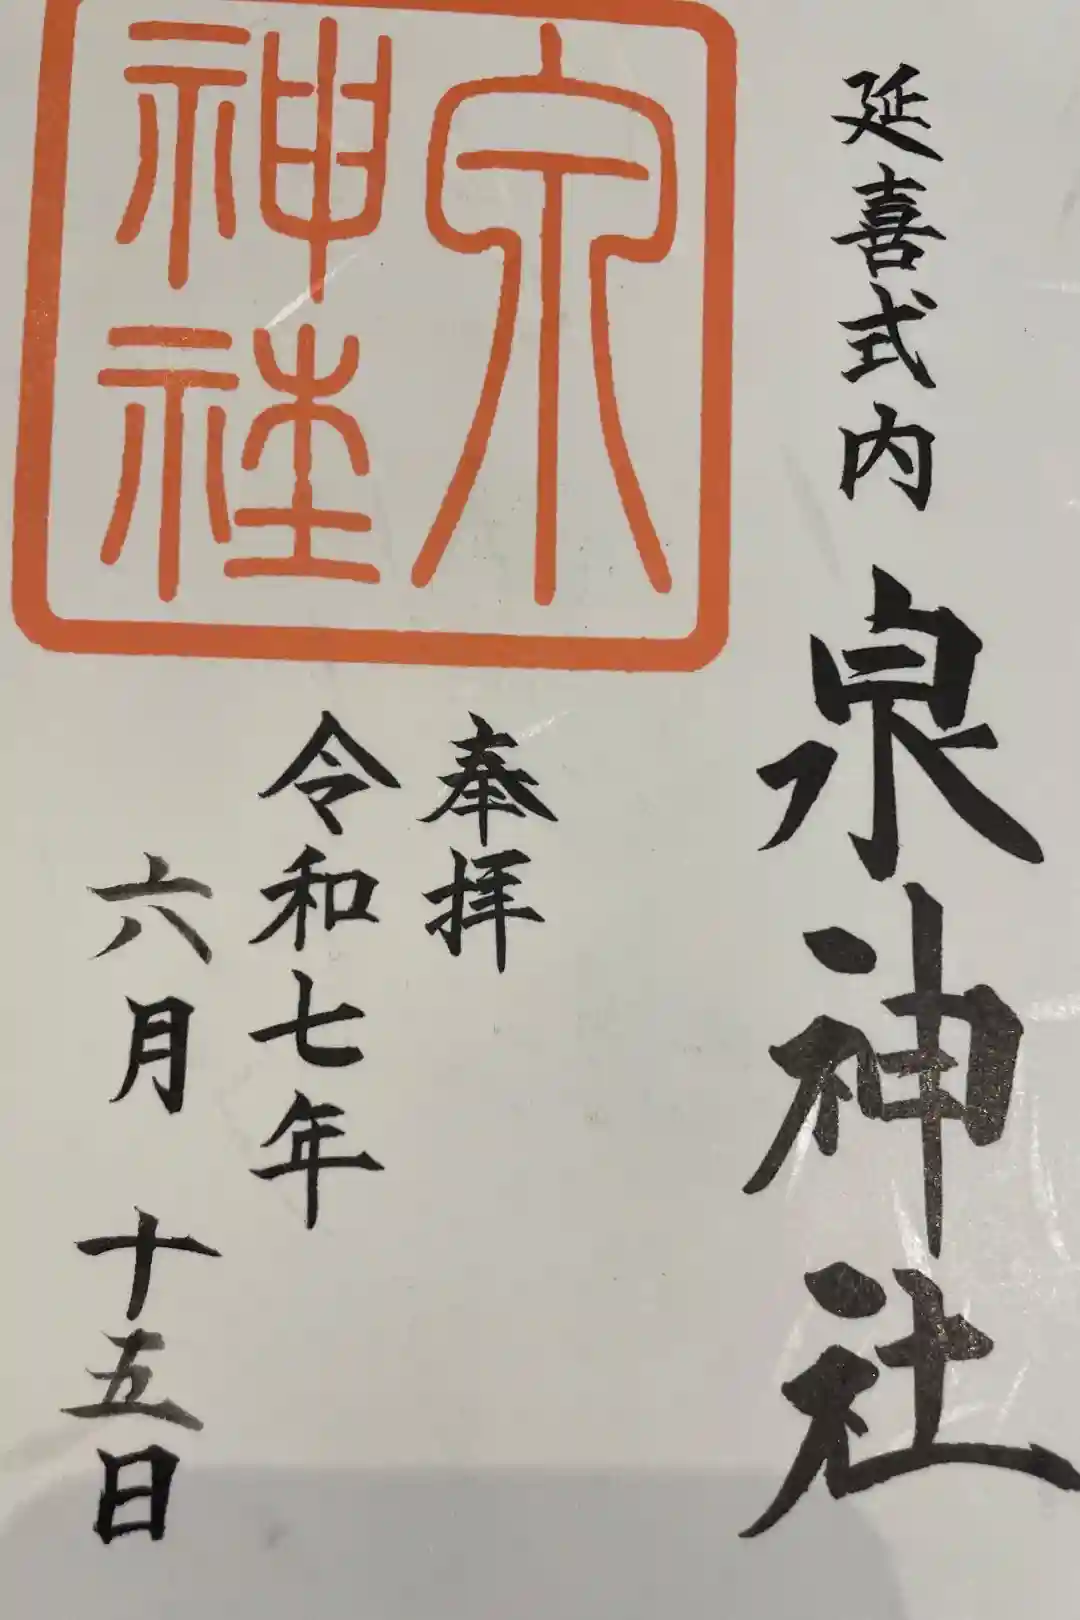 延喜式内 泉神社
奉拝
令和七年
六月 十五日
泉
神社